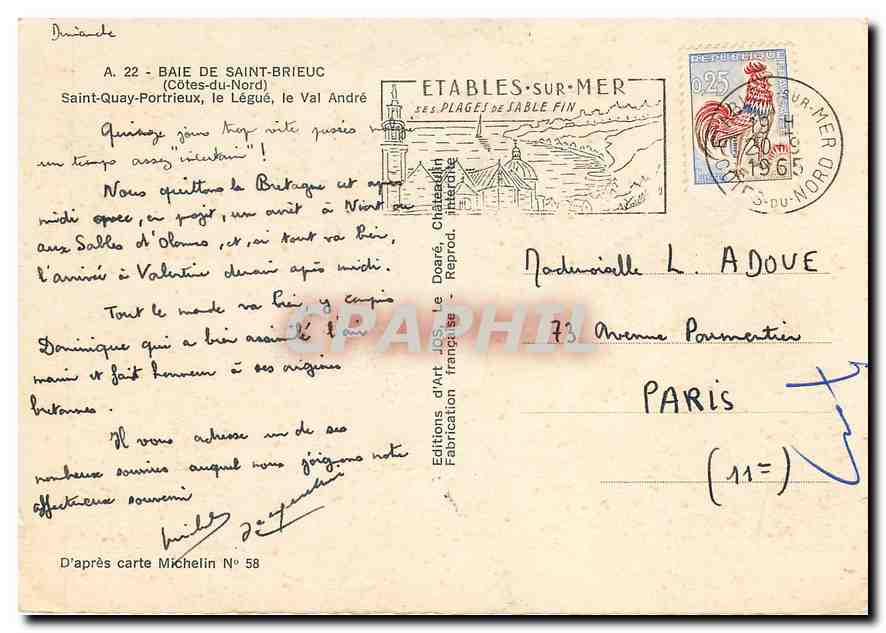 Dimanche
A. 22 - BAIE DE SAINT-BRIEUC
(Côtes-du-Nord)
Saint-Quay-Portrieux, le Légué, le Val André
Quinze jours trop vite passés malgré
un temps assez "incertain" !
Nous quittons la Bretagne cet après
midi avec, en projet, un arrêt à Niort ou
aux Sables d'Olonnes, et, si tout va bien,
l'arrivée à Valentine demain après midi.
Tout le monde va bien y compris
Dominique qui a bien assimilé l'air
marin et fait honneur à ses origines
bretonnes.
Il vous adresse un de ses
nombreux sourires auquel nous joignons notre
affectueux souvenir
D'après carte Michelin N° 58
Editions d'Art JOS, Le Doaré, Châteaulin
Fabrication française - Reprod. interdite
ETABLES-SUR-MER
SES PLAGES DE SABLE FIN
REPUBLIQUE
0,25
19 H
20 -
1965
CÔTES-DU-NORD
Mademoiselle L. ADOUE
73 Avenue Parmentier
PARIS
(11=)
CPAPHIL